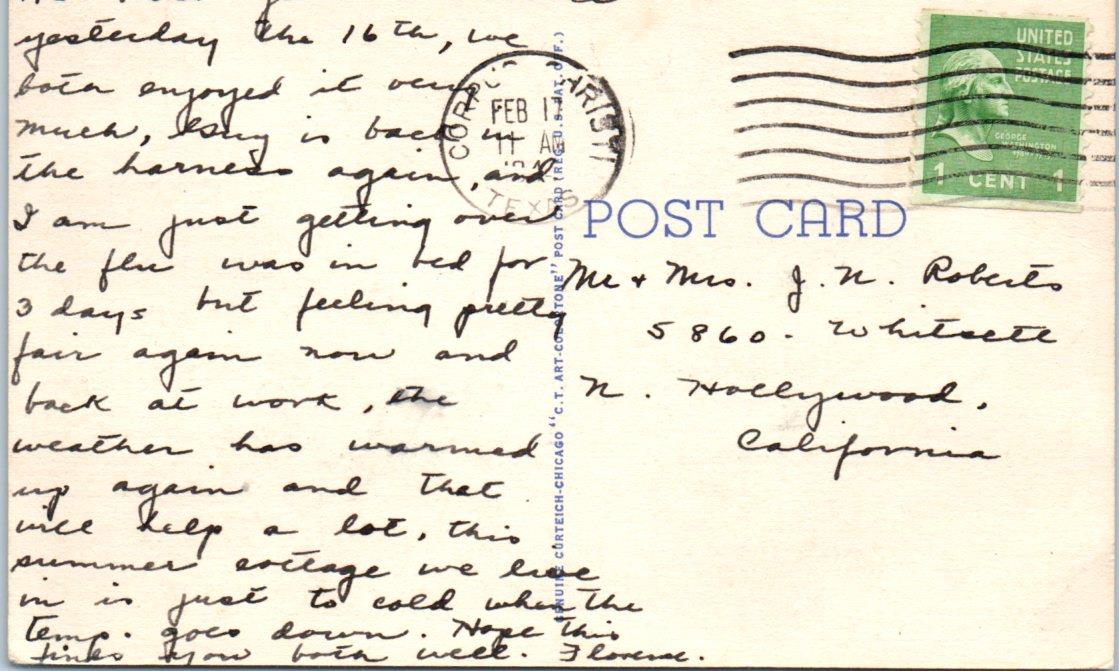 yesterday the 16th, we
both enjoyed it very
much, Guy is back in
the harness again, and
I am just getting over
the flu was in bed for
3 days but feeling pretty
fair again now and
back at work, the
weather has warmed
up again and that
will help a lot, this
summer cottage we live
in is just to cold when the
temp. goes down. Hope this
finds you both well. Florence.
CORPUS CHRISTI
FEB 17
11 AM
TEXAS
UNITED
STATES
POSTAGE
GEORGE
WASHINGTON
1 CENT 1
POST CARD
GENUINE CURTEICH-CHICAGO "C.T. ART-COLORTONE" POST CARD (REG. U.S. PAT. OFF.)
Mr & Mrs. J. N. Roberts
5860 - Whitsett
N. Hollywood,
California